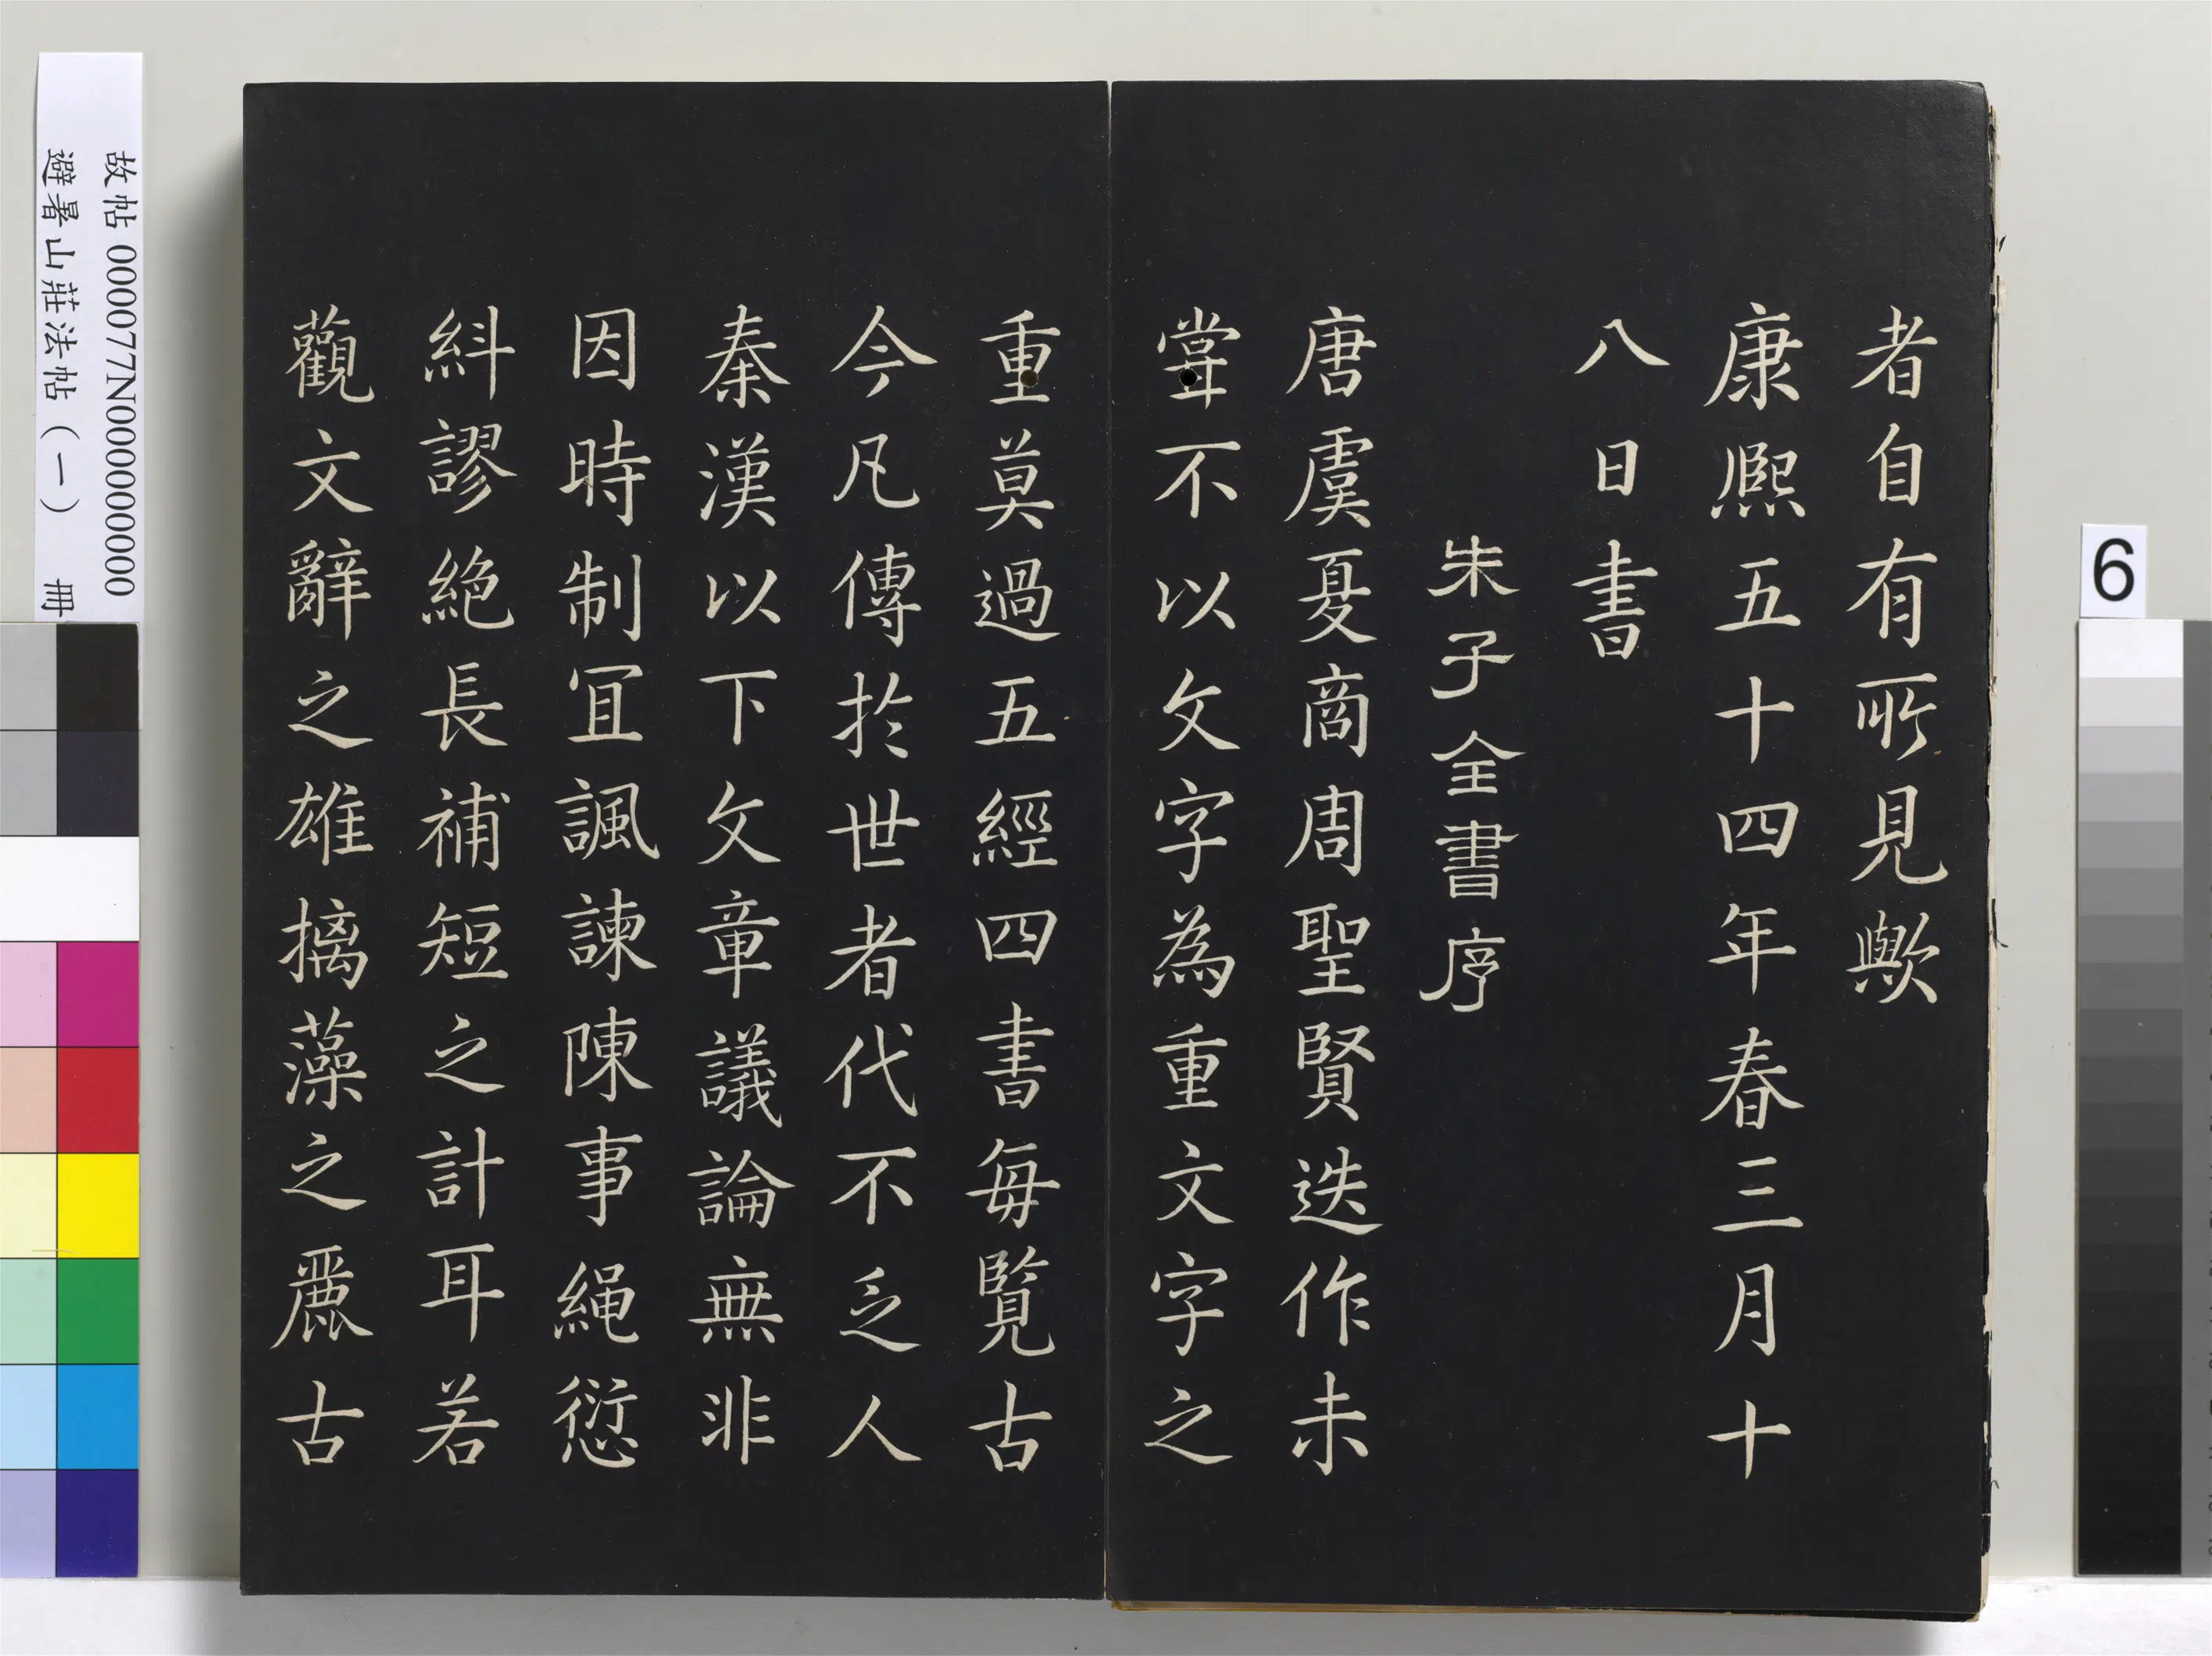 者自有所見歟
康熙五十四年春三月十
八日書
朱子全書序
唐虞夏商周聖賢迭作未
嘗不以文字為重文字之
重莫過五經四書每覽古
今凡傳於世者代不乏人
秦漢以下文章議論無非
因時制宜諷諫陳事繩愆
糾謬絶長補短之計耳若
觀文辭之雄摛藻之麗古
故帖 000077N000000000
避暑山莊法帖（一） 冊
6